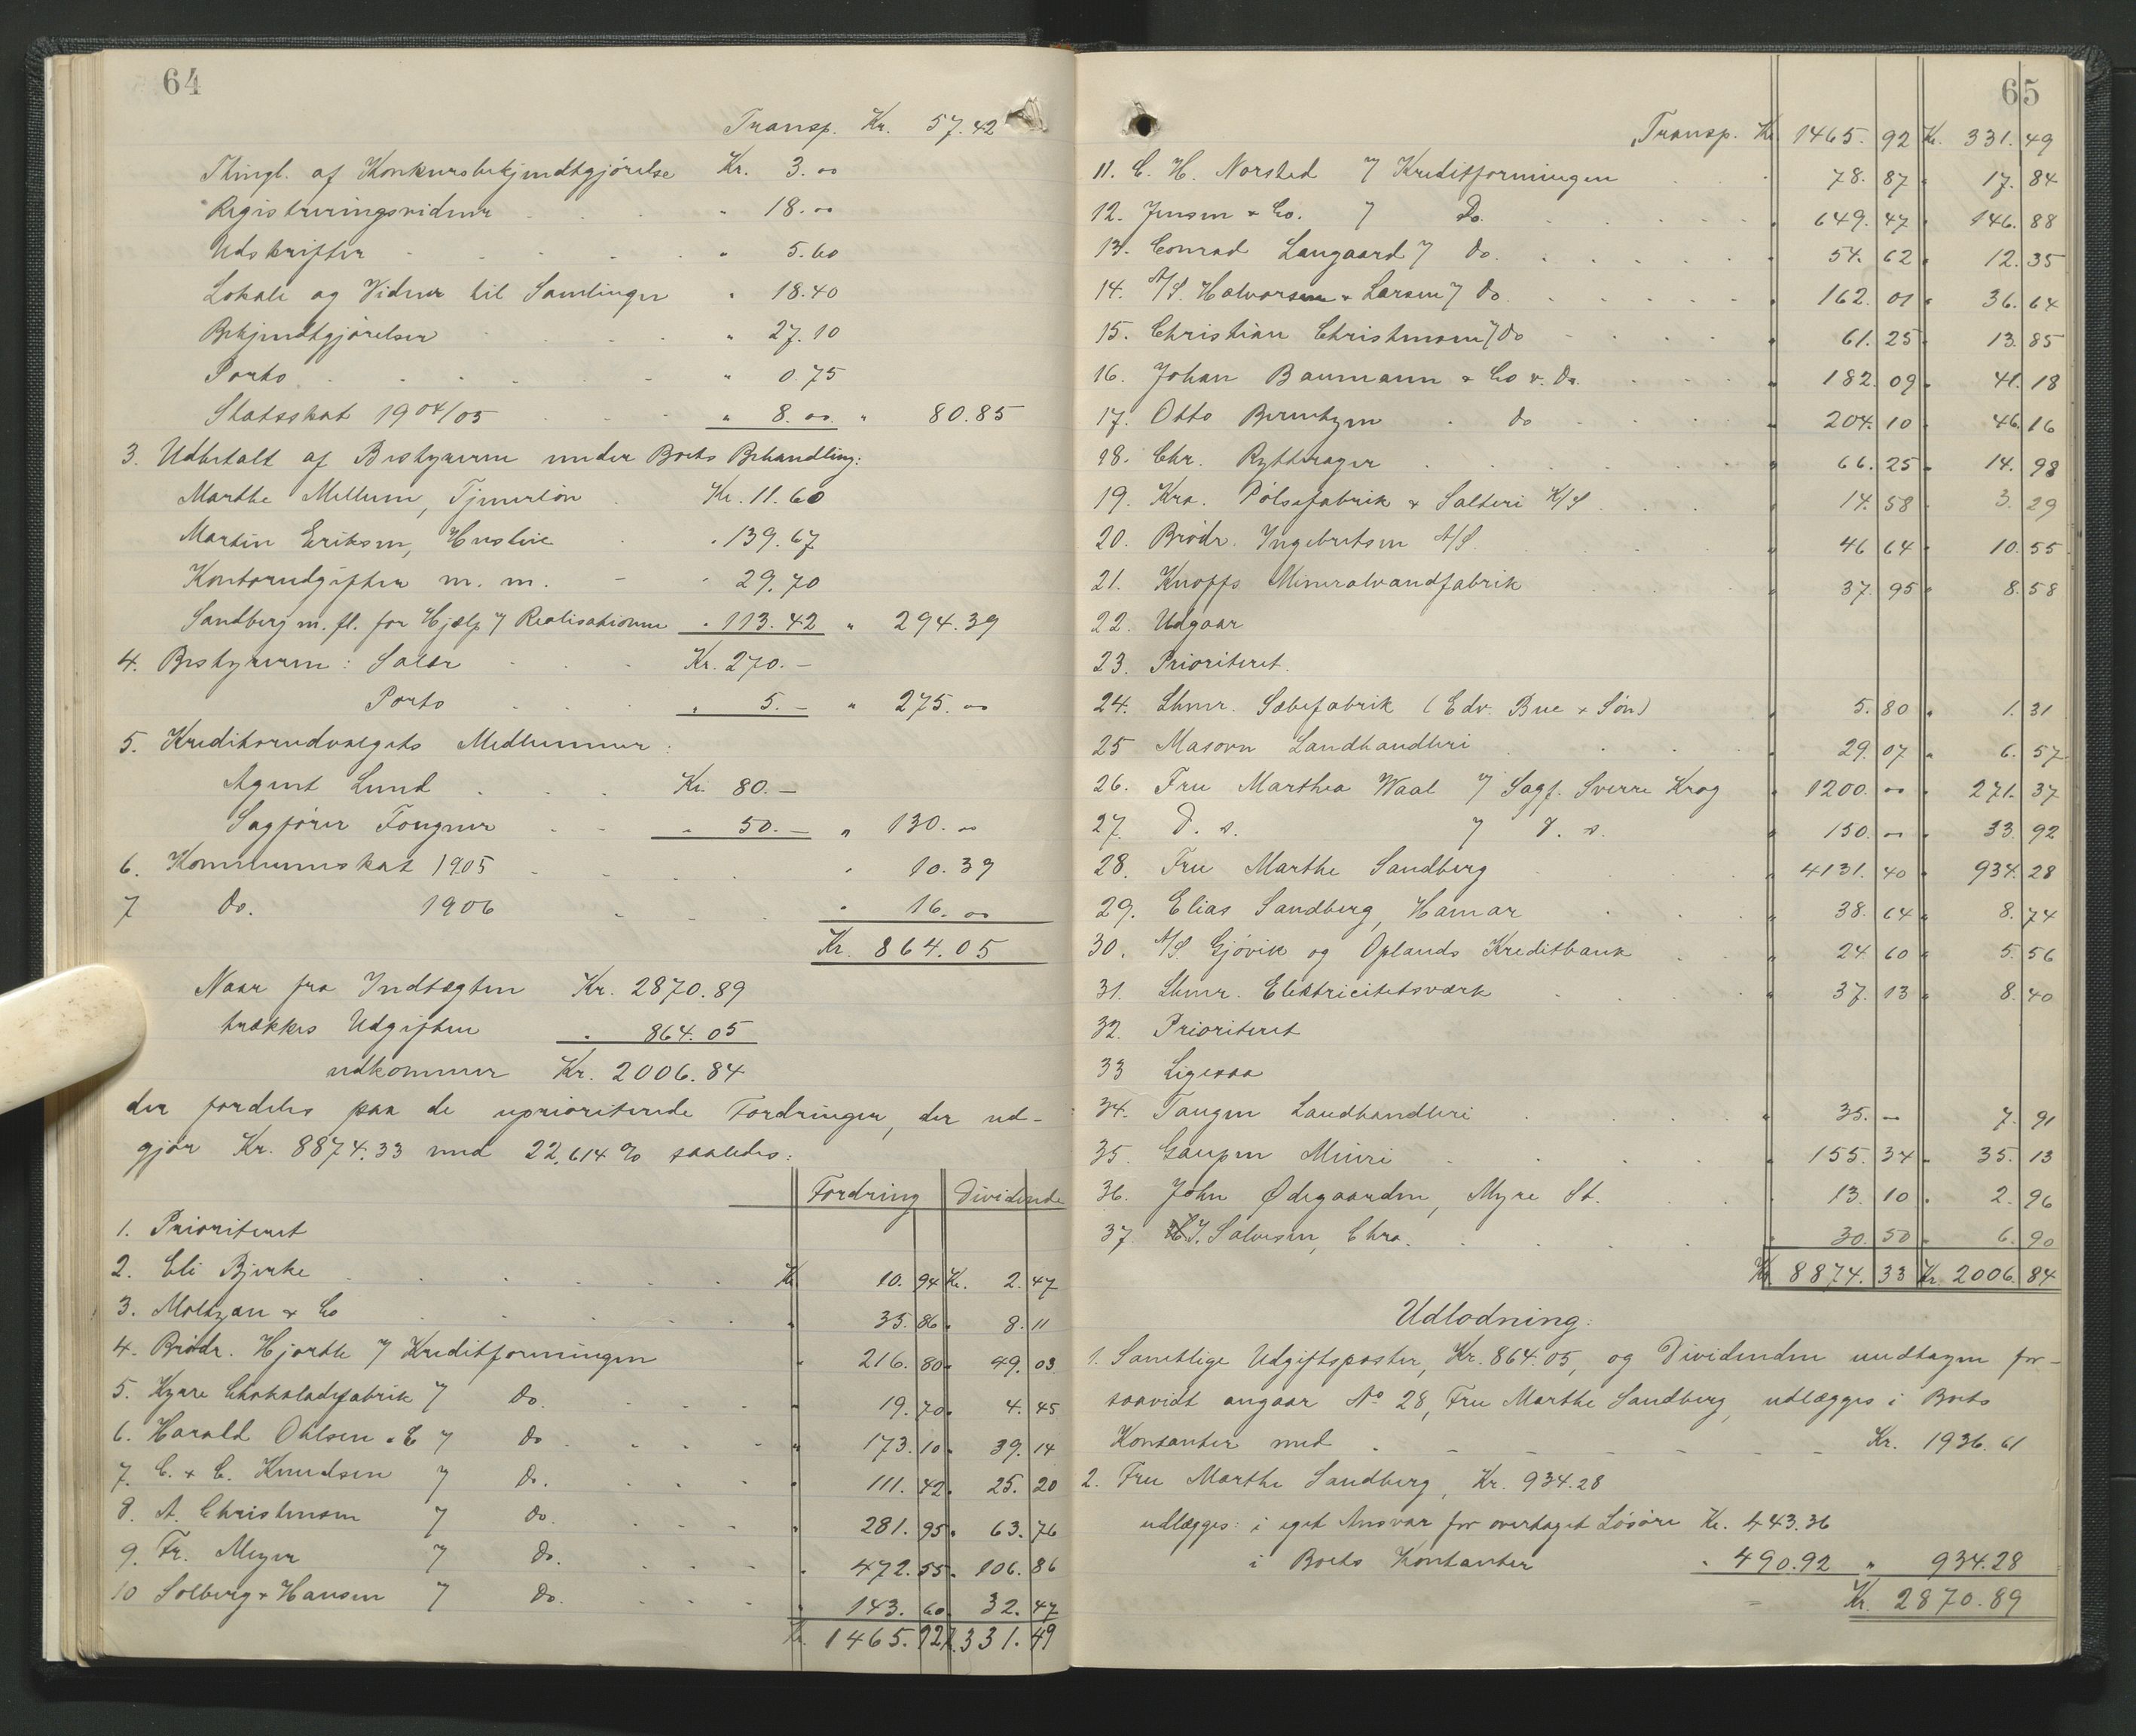 64
Transp. Kr. 57.42
Thingl. af Konkursbekjendtgjörelse Kr. 3.00
Registreringsvidner " 18.00
Udskrifter " 5.60
Lokale og Vidner til Samlinger " 18.40
Bekjendtgjörelser " 27.10
Porto " 0.75
Statsskat 1904/05 " 8.00 " 80.85
3. Udbetalt af Bestyreren under Boets Behandling:
Marthe Mellum, Tjenerlön Kr. 11.60
Martin Eriksen, Husleie " 139.67
Kontorudgifter m. m. " 29.70
Sandberg m. fl. for Hjælp v/ Realisationen " 113.42 " 294.39
4. Bestyreren: Salær Kr. 270.–
Porto " 5.– " 275.00
5. Kreditorudvalgets Medlemmer:
Agent Lund Kr. 80.–
Sagförer Fougner " 50.– " 130.00
6. Kommuneskat 1905 " 10.39
7 do. 1906 " 16.00
Kr. 864.05
Naar fra Indtægten Kr. 2870.89
trækkes Udgiften " 864.05
udkommer Kr. 2006.84
der fordeles paa de uprioriterede Fordringer, der ud-
gjör Kr. 8874.33 med 22,614 % saaledes:
Fordring Dividende
1. Prioriteret
2. Eli Bjerke Kr. 10.94 Kr. 2.47
3. Moltzau & Co " 35.86 " 8.11
4. Brödr. Hjorth v/ Kreditforeningen " 216.80 " 49.03
5. Kyare Chokoladefabrik v/ do. " 19.70 " 4.45
6. Harald Ohlsen & C v/ do " 173.10 " 39.14
7. C. & C. Knudsen v/ do. " 111.42 " 25.20
8. A. Christensen v/ do. " 281.95 " 63.76
9. Fr. Meyer v/ do. " 472.55 " 106.86
10 Solberg & Hansen v/ do. " 143.60 " 32.47
Kr. 1465.92 Kr. 331.49
65
Transp. Kr. 1465.92 Kr. 331.49
11. C. H. Norsted v/ Kreditforeningen 78.87 " 17.84
12. Jensen & Co. v/ Do. " 649.47 " 146.88
13. Conrad Langaard v/ do. " 54.62 " 12.35
14. A/S. Halvorsen & Larsen v/ do. " 162.01 " 36.64
15. Christian Christensen v/ do " 61.25 " 13.85
16. Johan Baumann & Co v. do. " 182.09 " 41.18
17. Otto Berentzen do " 204.10 " 46.16
18. Chr. Rytterager " 66.25 " 14.98
19. Kra. Pölsefabrik & Salteri K/S " 14.58 " 3.29
20. Brödr. Ingebretsen A/S. " 46.64 " 10.55
21. Knopffs Mineralvandfabrik " 37.95 " 8.58
22. Udgaar
23. Prioriteret.
24. Lhmr. Sæbefabrik (Edv. Bue & Sön) " 5.80 " 1.31
25 Masovn Landhandleri " 29.07 " 6.57
26. Fru Marthea Waal v/ Sagf. Sverre Krog " 1200.00 " 271.37
27. D. s. v/ d. s. " 150.00 " 33.92
28. Fru Marthe Sandberg " 4131.40 " 934.28
29. Elias Sandberg, Hamar " 38.64 " 8.74
30. A/S. Gjövik og Oplands Kreditbank " 24.60 " 5.56
31. Lhmr. Elektricitetsværk " 37.13 " 8.40
32. Prioriteret
33 Ligesaa
34. Tangen Landhandleri " 35.– " 7.91
35. Gaupen Mieri " 155.34 " 35.13
36. John Ødegaarden, Myre St. " 13.10 " 2.96
37. J. Salvesen, Chra. " 30.50 " 6.90
Kr. 8874.33 Kr. 2006.84
Udlodning:
1. Samtlige Udgiftsposter, Kr. 864.05, og Dividenden undtagen for-
saavidt angaar No 28, Fru Marthe Sandberg, udlægges i Boets
Kontanter med Kr. 1936.61
2. Fru Marthe Sandberg, Kr. 934.28
udlægges: i eget Ansvar for overtaget Lösöre Kr. 443.36
i Boets Kontanter " 490.92 " 934.28
Kr. 2870.89